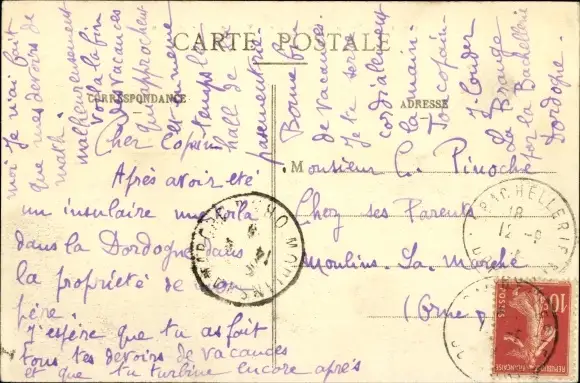 CARTE POSTALE
CORRESPONDANCE
ADRESSE
Cher Copain
Après avoir été
un insulaire me voila
dans la Dordogne dans
la propriété de mon
père.
J'espère que tu as fait
tous tes devoirs de vacances
et que tu turbine encore après
moi Je n'ai fait
que mes devoirs de
math.
malheureusement
voila la fin
des vacances
qui approchent
et même
temps le
hall de
Bonne fin
de vacances
Je te serre
cordialement
la main.
Ton copain
J. Couder
La Brange
par la Bachellerie
Dordogne.
Monsieur C. Pinoche
Chez ses Parents
Moulins-La-Marche
(Orne)
LA BACHELLERIE
18
12 -9
MOULINS
10c
POSTES
REPUBLIQUE FRANÇAISE